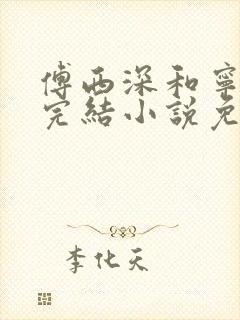 傅西深和寧
完結小說免
李化天